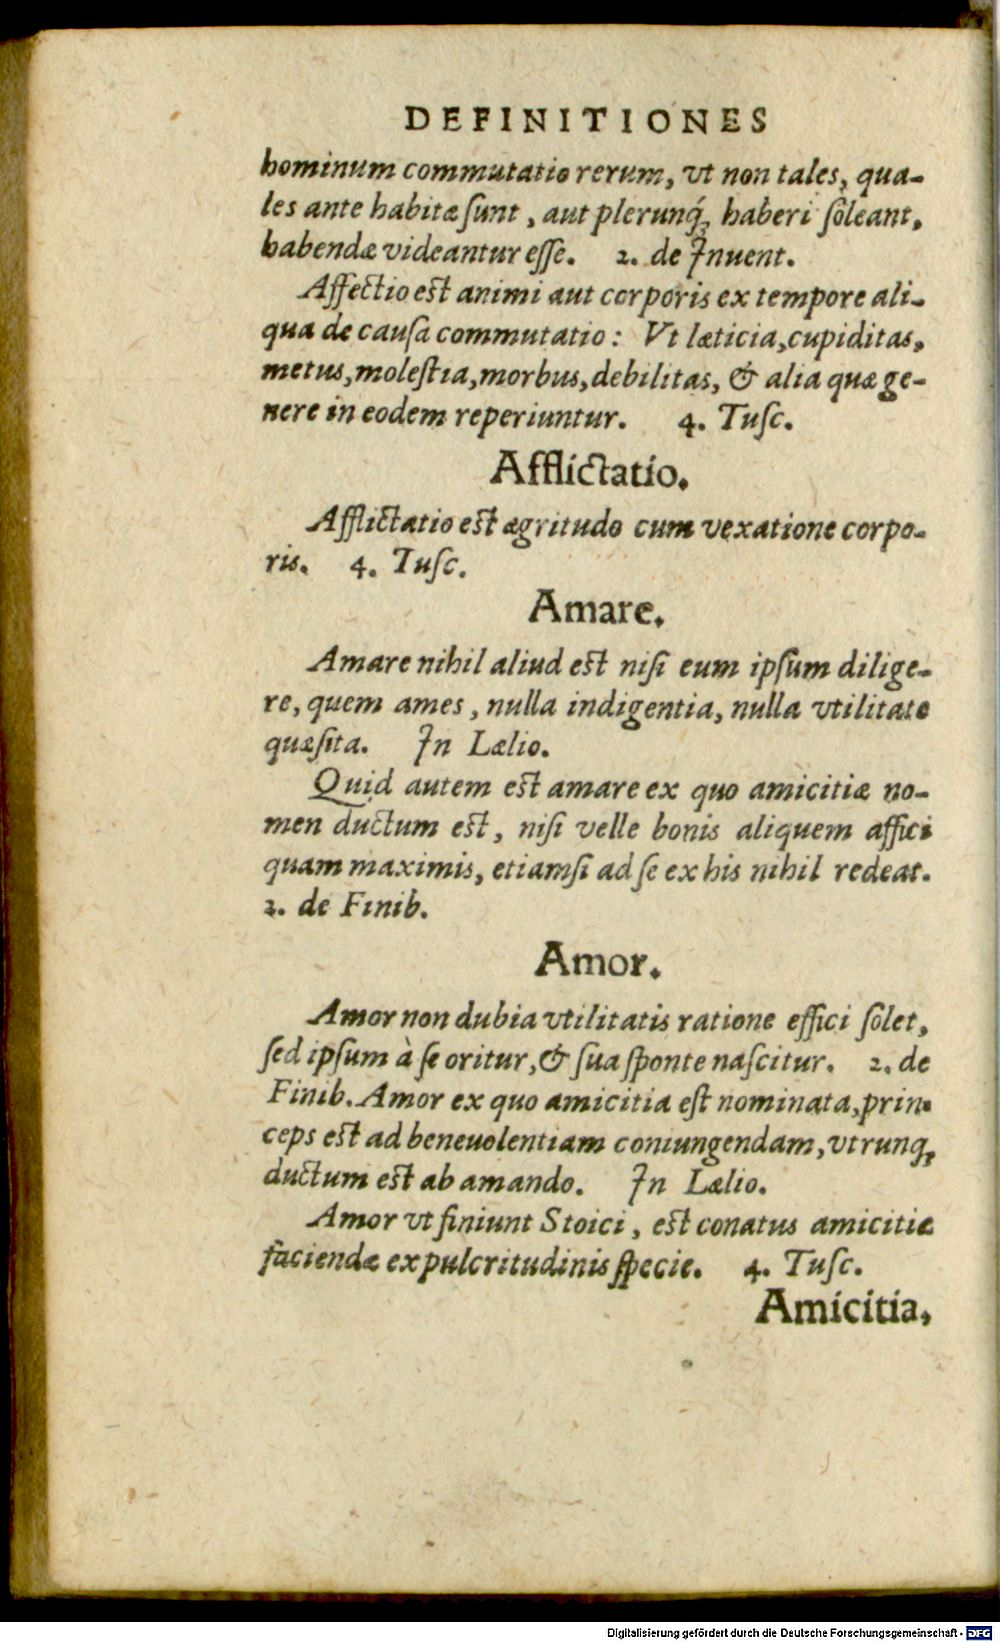 DEFINITIONES
hominum commutatio rerum, vt non tales, qua-
les ante habitæ ſunt, aut plerunq́; haberi ſoleant,
habendæ videantur eſſe. 2. de Inuent.
Affectio est animi aut corporis ex tempore ali-
qua de cauſa commutatio: Vt læticia, cupiditas,
metus, moleſtia, morbus, debilitas, & alia quæ ge-
nere in eodem reperiuntur. 4. Tuſc.
Afflictatio.
Afflictatio est ægritudo cum vexatione corpo-
ris. 4. Tuſc.
Amare.
Amare nihil aliud est niſi eum ipſum dilige-
re, quem ames, nulla indigentia, nulla vtilitate
quæſita. In Lælio.
Quid autem est amare ex quo amicitiæ no-
men ductum est, niſi velle bonis aliquem affici
quam maximis, etiamſi ad ſe ex his nihil redeat.
2. de Finib.
Amor.
Amor non dubia vtilitatis ratione effici ſolet,
ſed ipſum à ſe oritur, & ſua ſponte naſcitur. 2. de
Finib. Amor ex quo amicitia eſt nominata, prin-
ceps est ad beneuolentiam coniungendam, vtrunq;
ductum est ab amando. In Lælio.
Amor vt finiunt Stoici, est conatus amicitiæ
faciendæ ex pulcritudinis ſpecie. 4. Tuſc.
Amicitia,
Digitalisierung gefördert durch die Deutsche Forschungsgemeinschaft - DFG